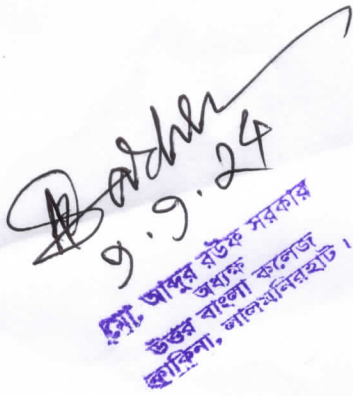 9.9.24
মো. আব্দুর রউফ সরকার
অধ্যক্ষ
উত্তর বাংলা কলেজ
কাকিনা, লালমনিরহাট।